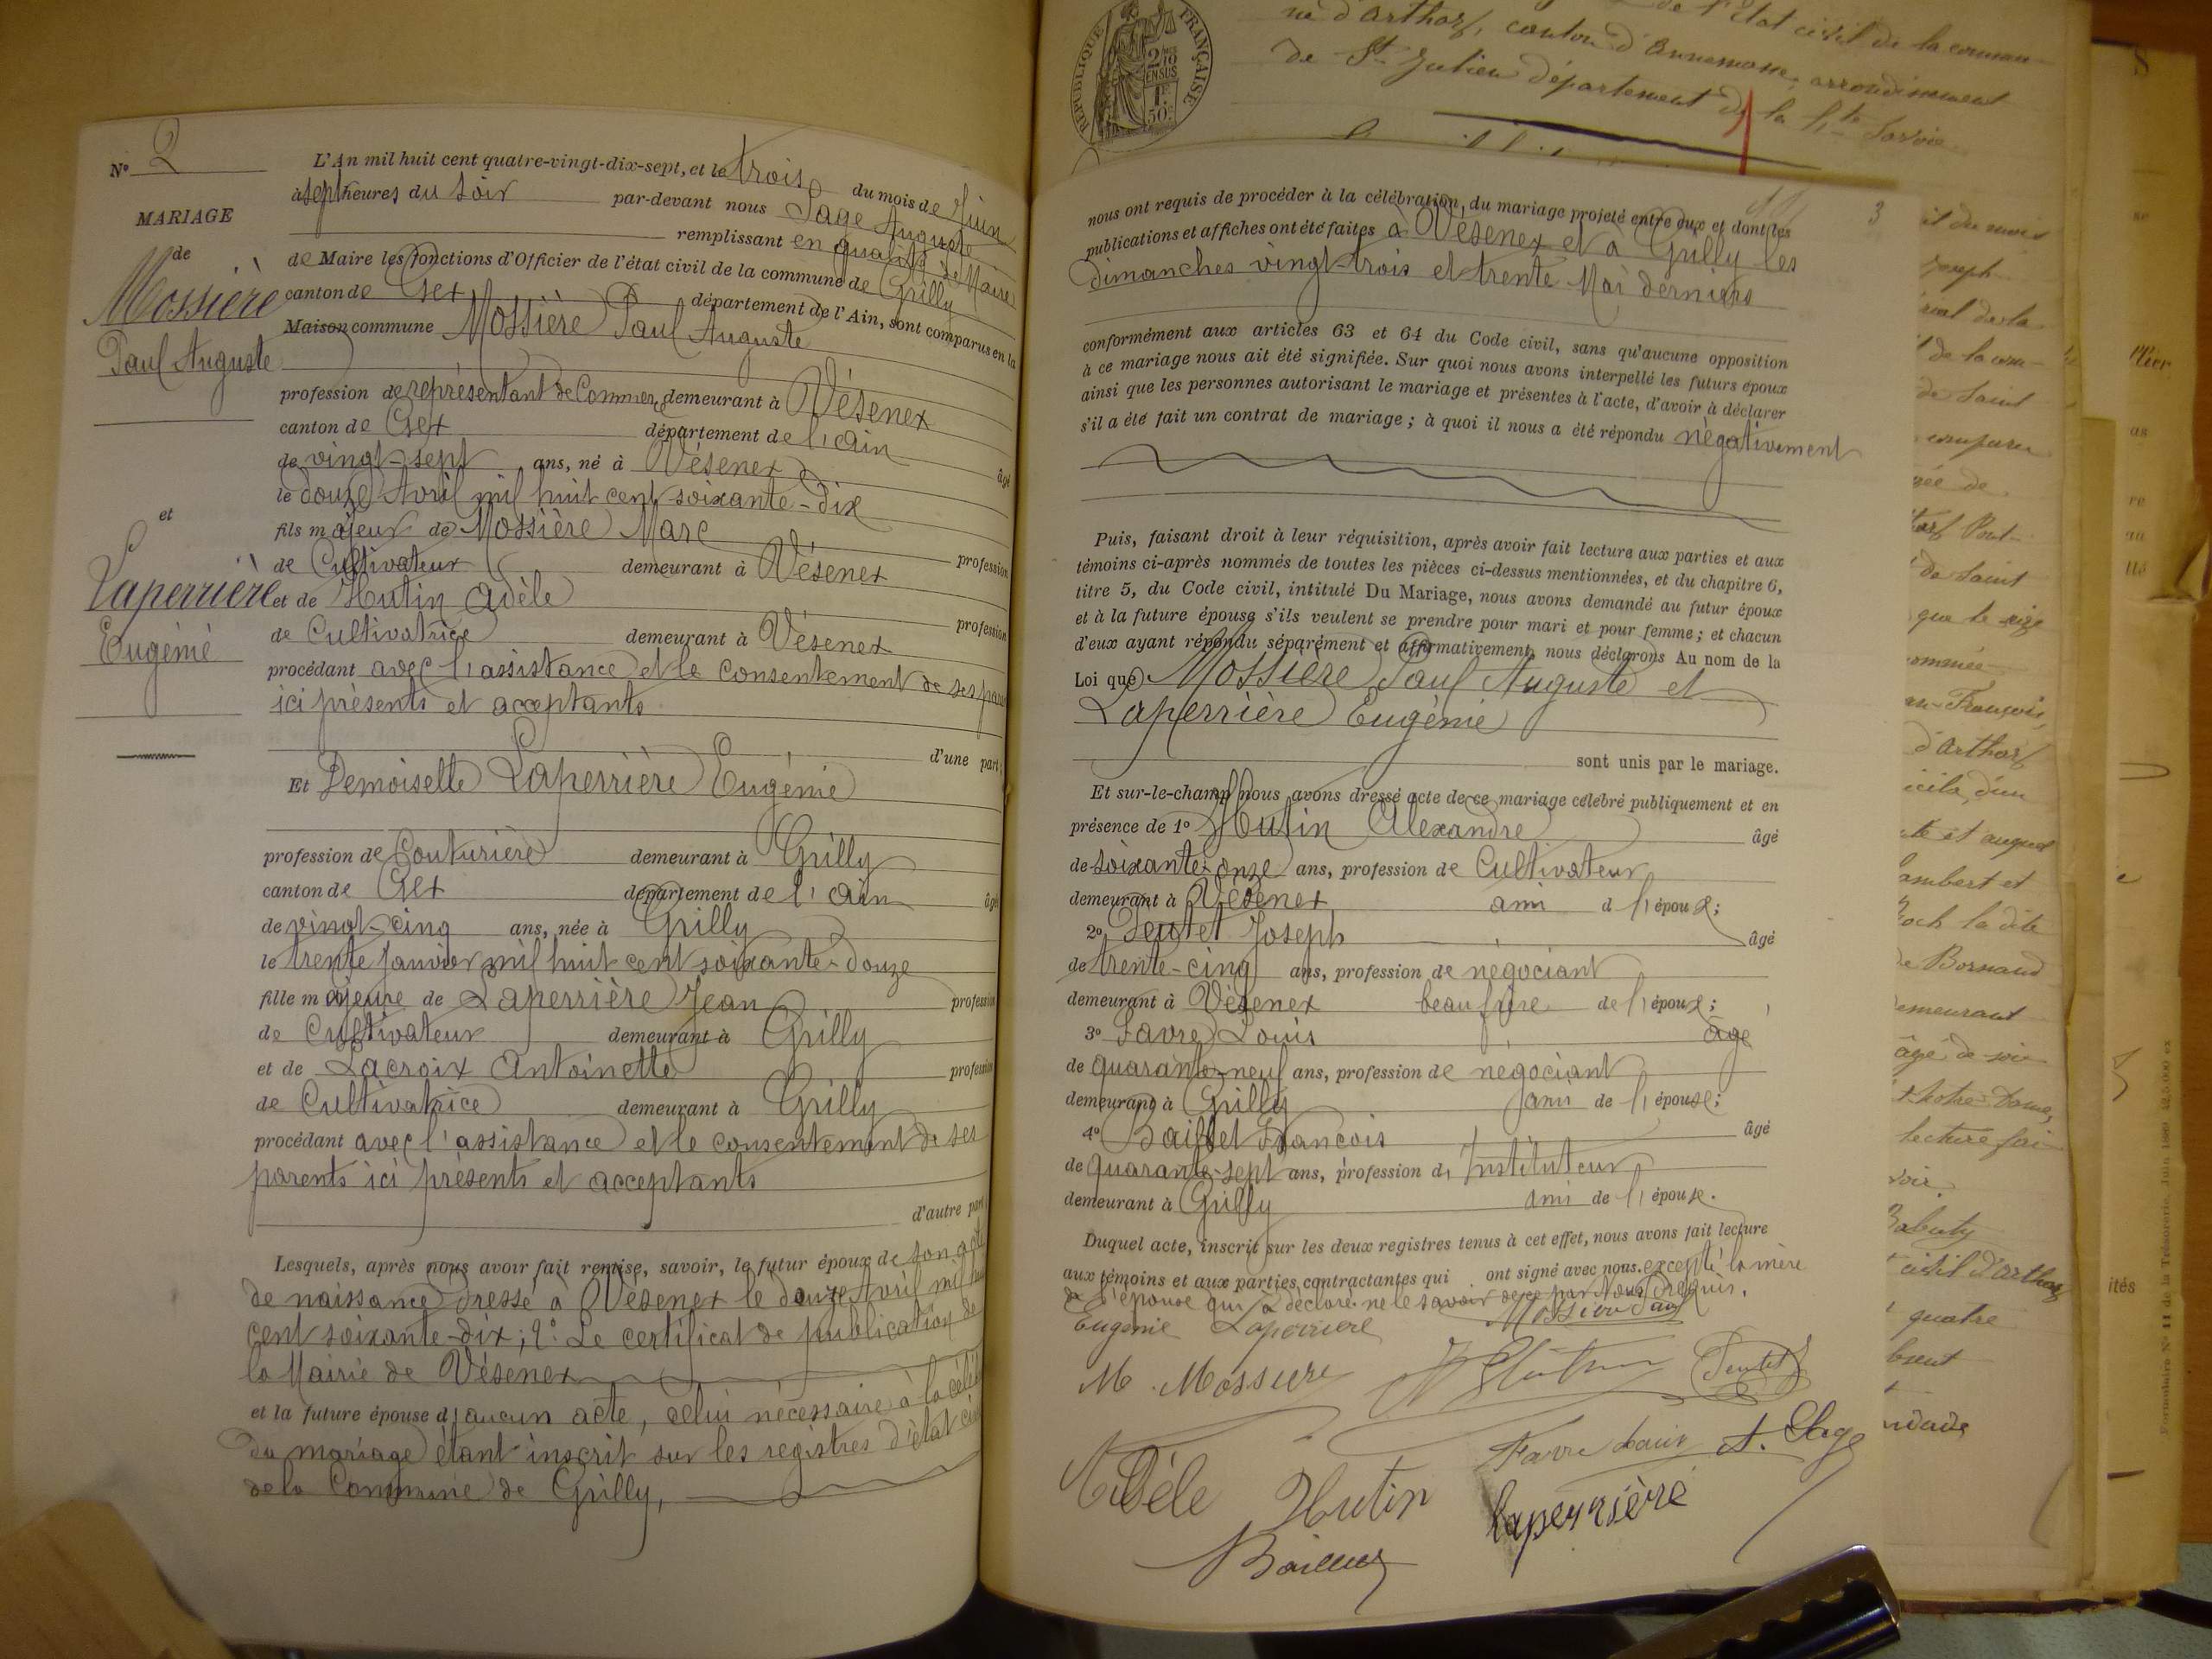 N° 2
MARIAGE
de
Mossière
Paul Auguste
et
Laperrière
Eugénie
L'An mil huit cent quatre-vingt-dix-sept, et le trois du mois de Juin
à sept heures du soir par-devant nous Sage Auguste
remplissant en qualité de Maire
de Maire les fonctions d'Officier de l'état civil de la commune de Grilly
canton de Gex département de l'Ain, sont comparus en la
Maison commune Mossière Paul Auguste
profession de représentant de Commerce demeurant à Vésenex
canton de Gex département de l'Ain âgé
de vingt-sept ans, né à Vésenex
le douze Avril mil huit cent soixante-dix
fils majeur de Mossière Marc profession
de Cultivateur demeurant à Vésenex
et de Hutin Adèle profession
de Cultivatrice demeurant à Vésenex
procédant avec l'assistance et le consentement de ses
ici présents et acceptants
d'une part;
Et Demoiselle Laperrière Eugénie
profession de Couturière demeurant à Grilly
canton de Gex département de l'Ain âgé
de vingt-cinq ans, née à Grilly
le trente Janvier mil huit cent soixante-douze
fille majeure de Laperrière Jean profession
de Cultivateur demeurant à Grilly
et de Lacroix Antoinette profession
de Cultivatrice demeurant à Grilly
procédant avec l'assistance et le consentement de ses
parents ici présents et acceptants
d'autre part
Lesquels, après nous avoir fait remise, savoir, le futur époux de son acte
de naissance dressé à Vésenex le douze Avril mil huit
cent soixante-dix; 2° Le certificat de publication de
la Mairie de Vésenex
et la future épouse d'aucun acte, celui nécessaire à la
du mariage étant inscrit sur les registres d'état
de la Commune de Grilly,
RÉPUBLIQUE FRANÇAISE
2/10
EN SUS
1F
50c
de l'état civil de la commu-
ne d'Arthaz, canton d'Annemasse, arrondissement
de St Julien département de la Hte Savoie
3
nous ont requis de procéder à la célébration du mariage projeté entre eux et dont les
publications et affiches ont été faites à Vésenex et à Grilly les
dimanches vingt-trois et trente Mai derniers
conformément aux articles 63 et 64 du Code civil, sans qu'aucune opposition
à ce mariage nous ait été signifiée. Sur quoi nous avons interpellé les futurs époux
ainsi que les personnes autorisant le mariage et présentes à l'acte, d'avoir à déclarer
s'il a été fait un contrat de mariage; à quoi il nous a été répondu négativement
Puis, faisant droit à leur réquisition, après avoir fait lecture aux parties et aux
témoins ci-après nommés de toutes les pièces ci-dessus mentionnées, et du chapitre 6,
titre 5, du Code civil, intitulé Du Mariage, nous avons demandé au futur époux
et à la future épouse s'ils veulent se prendre pour mari et pour femme; et chacun
d'eux ayant répondu séparément et affirmativement, nous déclarons Au nom de la
Loi que Mossière Paul Auguste et
Laperrière Eugénie
sont unis par le mariage.
Et sur-le-champ nous avons dressé acte de ce mariage célébré publiquement et en
présence de 1° Hutin Alexandre âgé
de soixante-onze ans, profession de Cultivateur
demeurant à Vésenex ami d l'époux;
2° Pentet Joseph âgé
de trente-cinq ans, profession de négociant
demeurant à Vésenex beau frère de l'époux;
3° Favre Louis âgé
de quarante-neuf ans, profession de négociant
demeurant à Grilly ami de l'épouse;
4° Baillet François âgé
de quarante-sept ans, profession d'Instituteur
demeurant à Grilly ami de l'épouse.
Duquel acte, inscrit sur les deux registres tenus à cet effet, nous avons fait lecture
aux témoins et aux parties contractantes qui ont signé avec nous. excepté la mère
de l'épouse qui a déclaré ne le savoir de ce par Nous Requis.
Eugénie Laperrière Mossière Paul
M. Mossière Hutin Pentet
Favre Louis A. Sage
Adèle Hutin Laperrière
Baillet
Formulaire N° 11 de la Trésorerie. Juin 1889